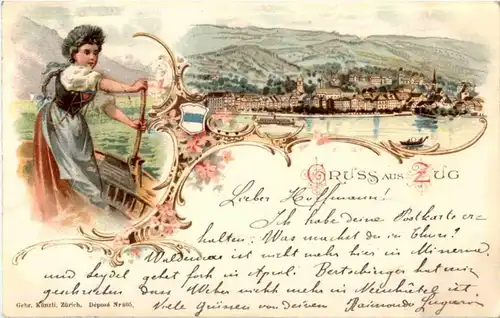 GRUSS AUS ZUG
Lieber Hoffmann!
Ich habe deine Postkarte er-
halten. Was machst du in Thun?
ist nicht mehr hier in Minerva
und geht fort in April. Bertschinger hat mir
geschrieben dass Weber nicht mehr in Neuchâtel ist
Viele Grüssen von deinem Raimondo Lugano
Gebr. Künzli, Zürich. Déposé Nr